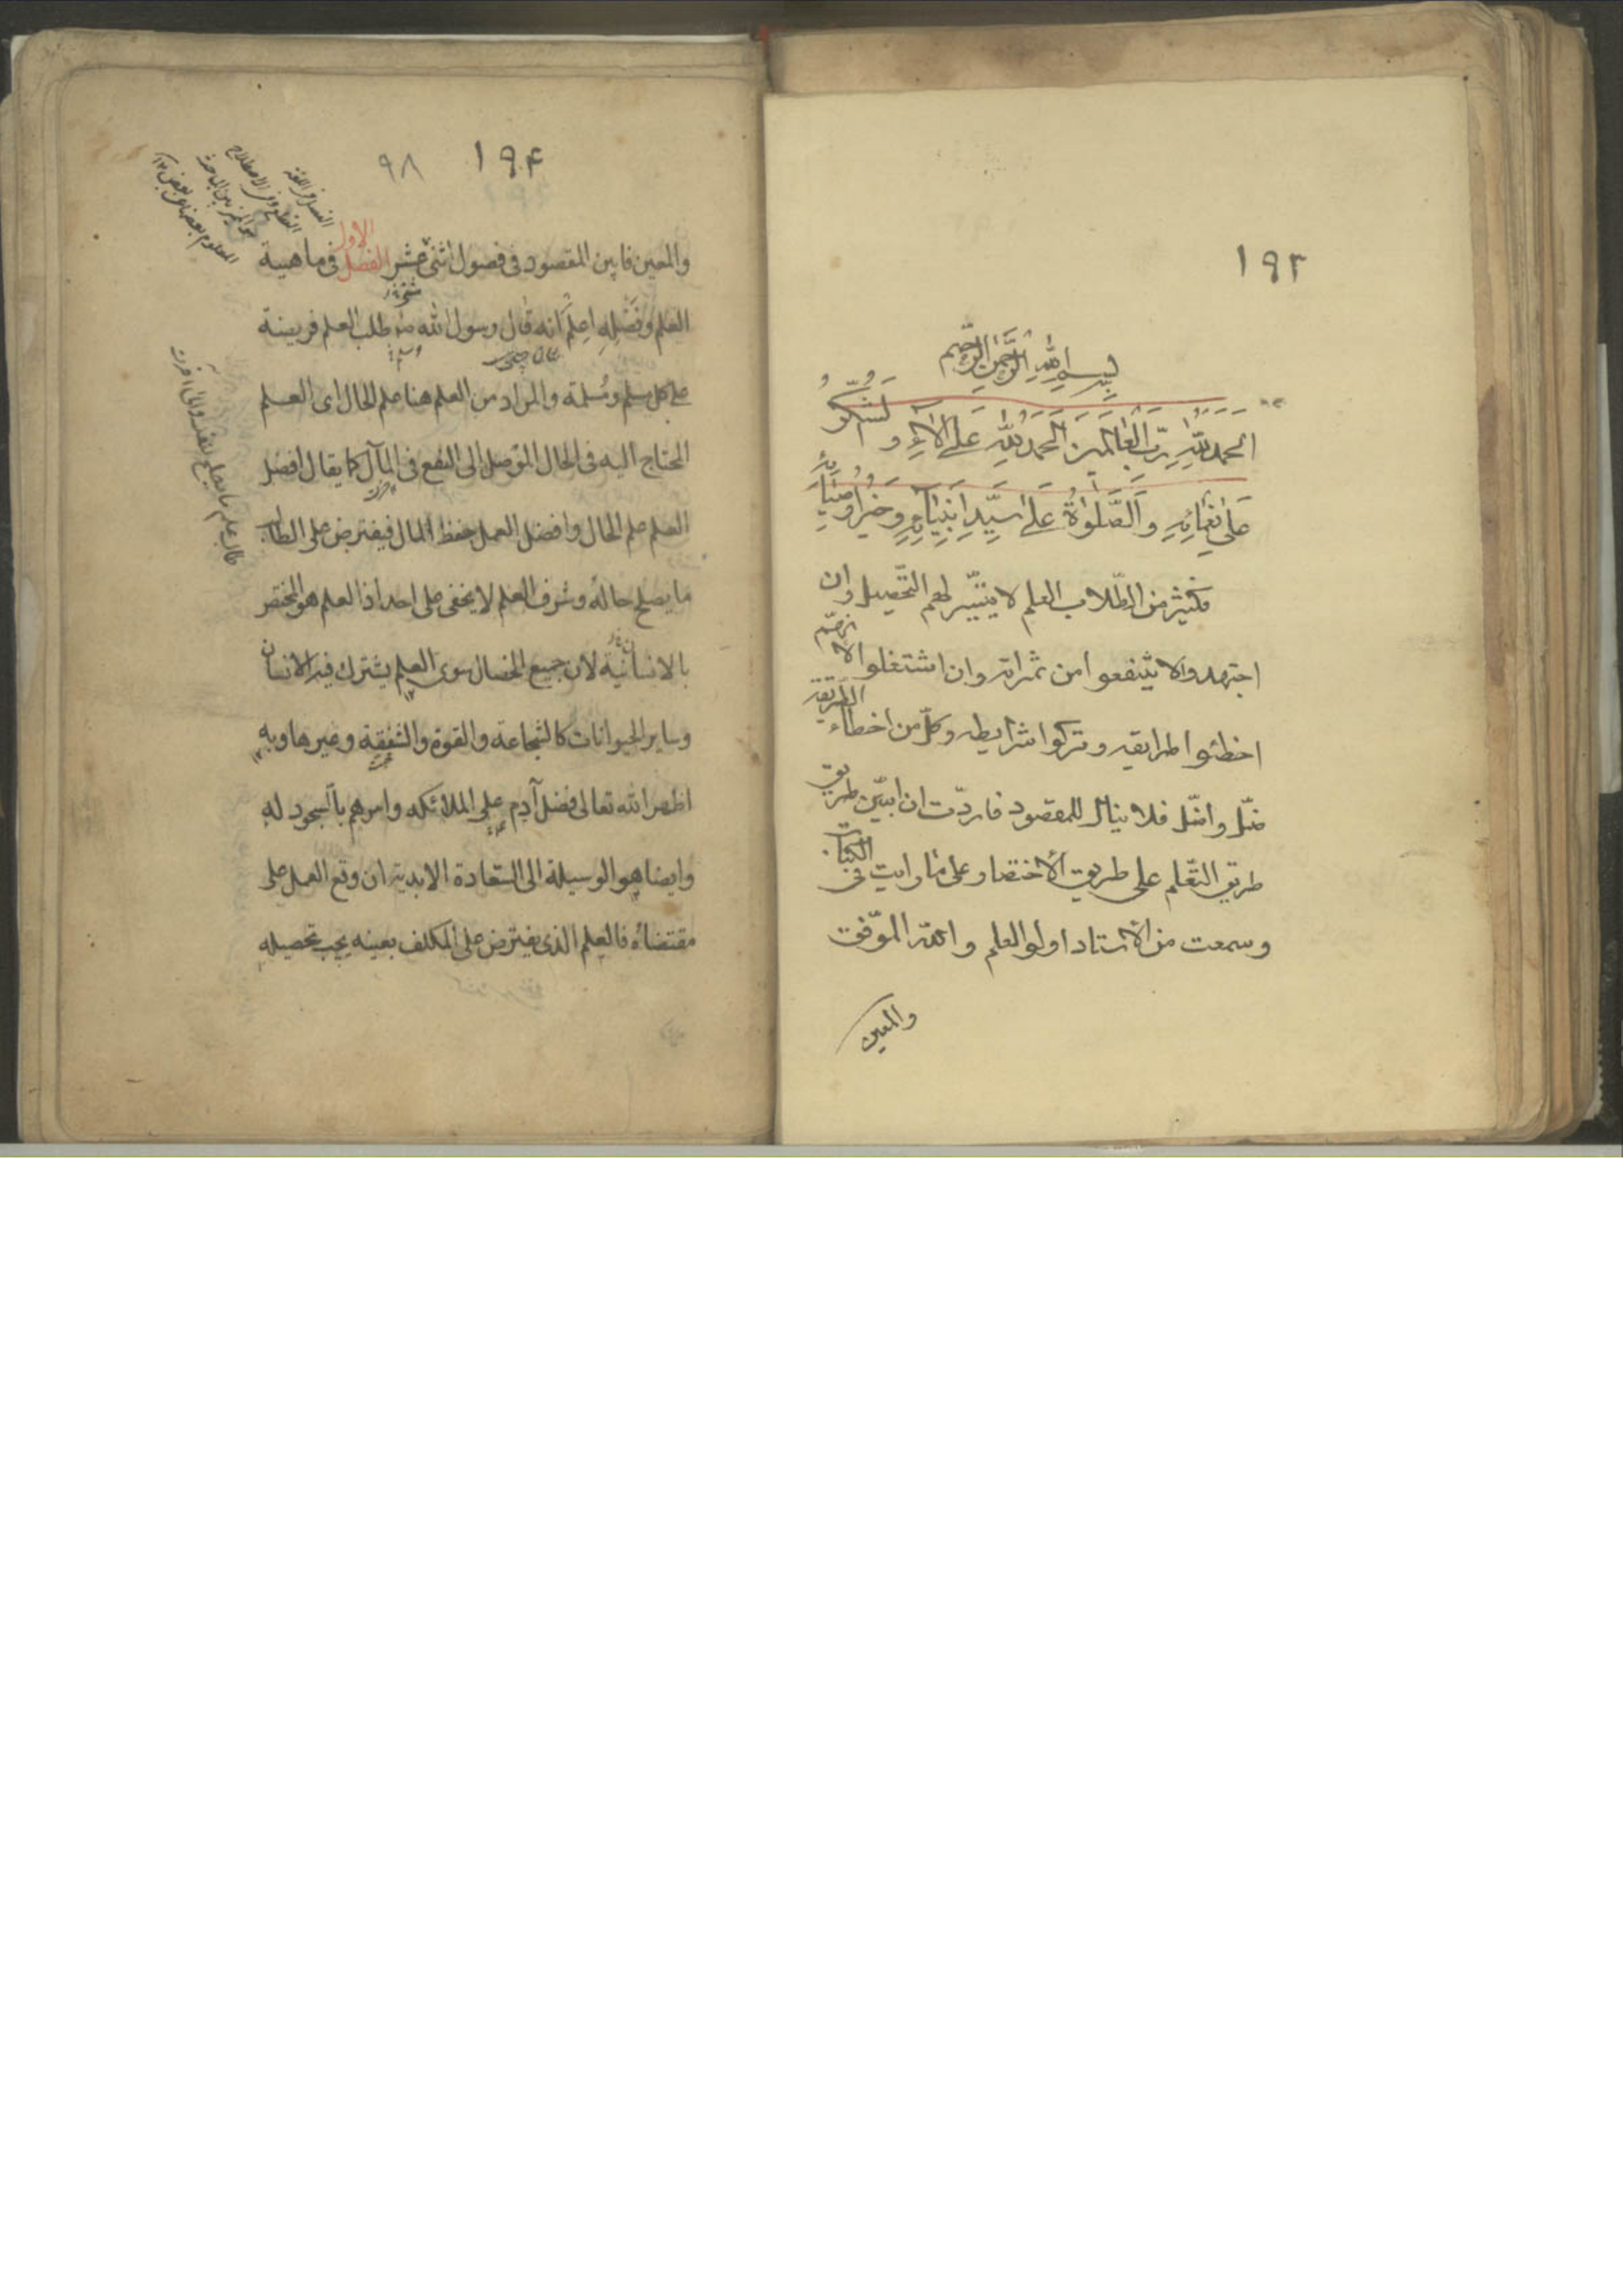 ١٩٣
بسم الله الرحمن الرحيم
اَلحَمدُ لِلّٰهِ رَبِّ العٰالَمينَ اَلحَمدُ لِلّٰهِ عَلىٰ آلاٰئِهِ و نَشكُرُ
عَلىٰ نَعمٰائِهِ وَ الصَّلوٰةُ عَلىٰ سَيِّدِ اَنبِيٰآئِهِ وَ خَيرِ اَوصِيٰائِهِ
فكثيرٌ من الطّلاب العلم لا يتيسّر لهم التّحصيل وان
اجتهدوا لا ينتفعوا من ثمراته وان اشتغلوا لانهّم
اخطئوا طرايقه وتركوا شرايطه وكلّ من اخطاء الطّريقة
ضلّ واضلّ فلا ينال للمقصود فاردّت ان ابيّن طريق
طريق التعّلم على طريق الأختصار على ما رايت فى الكتاب
وسمعت من الاستاد اولو العلم و الله الموّفق
والمعين
١٩۴ ٩٨
والمعين فابين المقصود فى فصول اثنى عشر الفصل الاول فى ماهية
العلم وفضله اعلم انه قال رسول الله ص طلب العلم فريضة
على كل مسلم ومسلمة والمراد من العلم هنا علم الحال اى العلم
المحتاج اليه فى الحال الموصل الى النفع فى المآل كما يقال افضل
العلم علم الحال وافضل العمل حفظ المال فيفترض على الطالب
ما يصلح حاله وشرف العلم لا يخفى على احد اذا العلم هو المختصر
بالانسانية لان جميع الخصال سوى العلم يشترك فيه الانسان
وساير الحيوانات كالشجاعة والقوة والشفقة وغيرها وبه
اظهر الله تعالى فضل آدم على الملائكه وامرهم بالسجود له
وايضا هو الوسيلة الى السّعادة الابدية ان وقع العمل على
مقتضائه فالعلم الذى يفترض على المكلف بعينه يجب تحصيله
الفصل فى اللغة
القطع وفى الاصطلاح